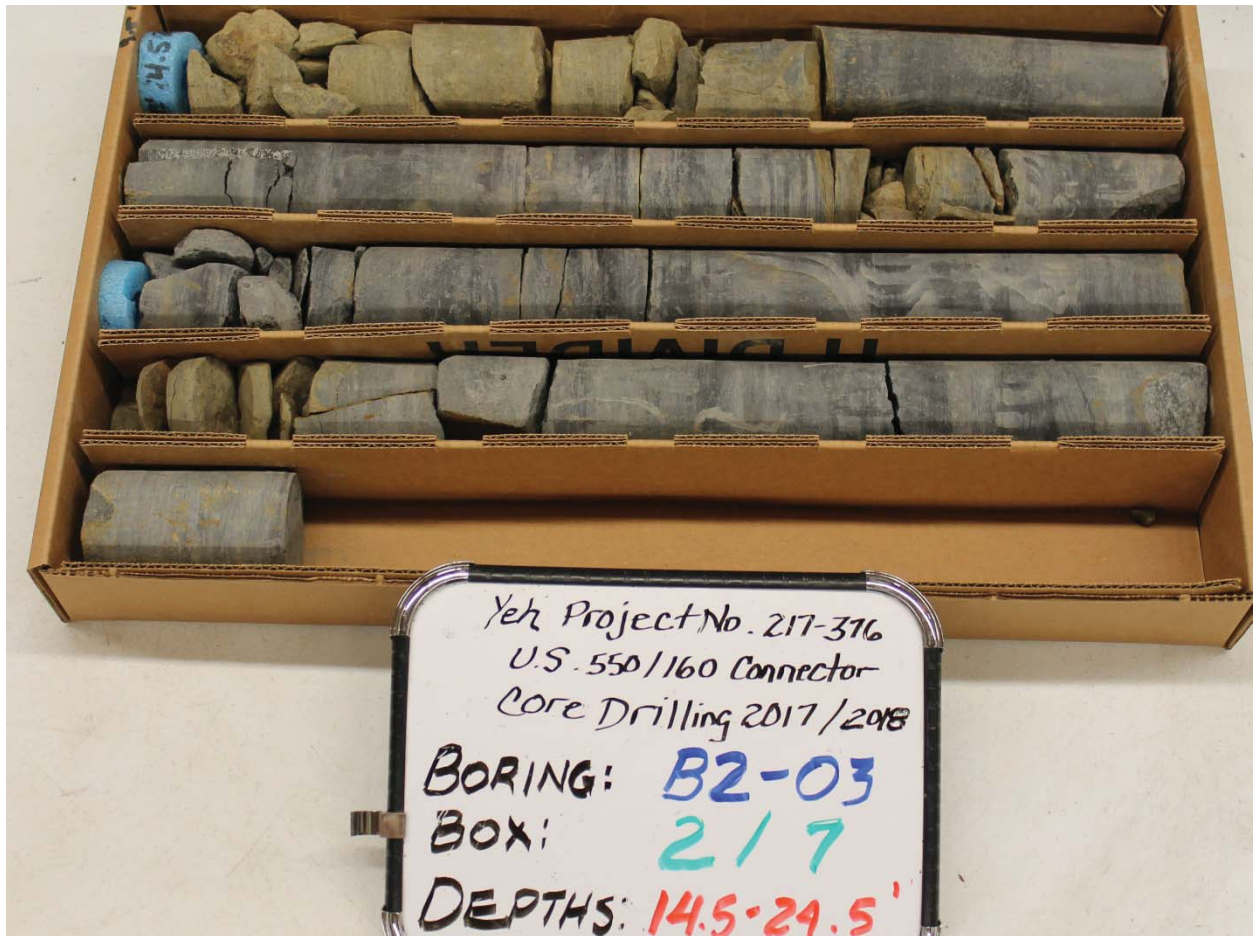 14.5
H DIVIDER
Yeh Project No. 217-376
U.S. 550/160 Connector
Core Drilling 2017/2018
BORING: B2-03
BOX: 2/7
DEPTHS: 14.5-24.5'